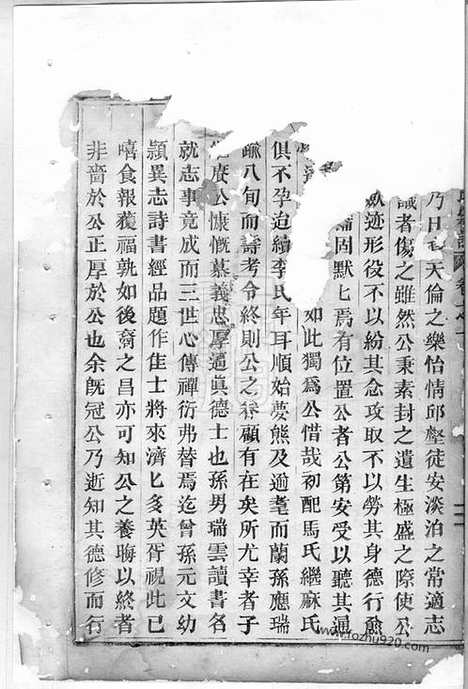 乃日 天倫之樂怡情邱壑徒安淡泊之常適志
識者傷之雖然公秉素封之遺生極盛之際使公
歛迹形役不以累其念攻取不以勞其身德行愈
固默匕焉有位置公者公第安受以聽其適
如此獨為公惜哉初配馬氏繼麻氏
俱不孕迨續李氏年耳順始夢熊及逾耄而蘭孫應瑞
八旬而壽考令終則公之 顧有在矣所尤幸者子
度公慷慨慕義忠厚逼眞德士也孫男瑞雲讀書名
就志事竟成而三世心傳禪衍弗替焉迄曾孫元文幼
頴異志詩書經品題作佳士將來濟匕多英胥視此已
嘻食報獲福孰如後裔之昌亦可知公之養晦以終者
非嗇於公正厚於公也余既冠公乃逝知其德修而行
www.rozhu920.com